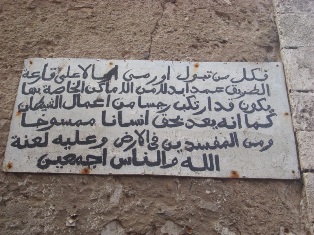 فكل من تبول او رمى الا على قاعة
الطريق عمدا بدلا من الأماكن الخاصة بها
يكون قد ارتكب رجسا من اعمال الشيطان
كما انه يعد بحق انسانا ممسوخا
ومن المفسدين في الأرض وعليه لعنة
الله والناس اجمعين